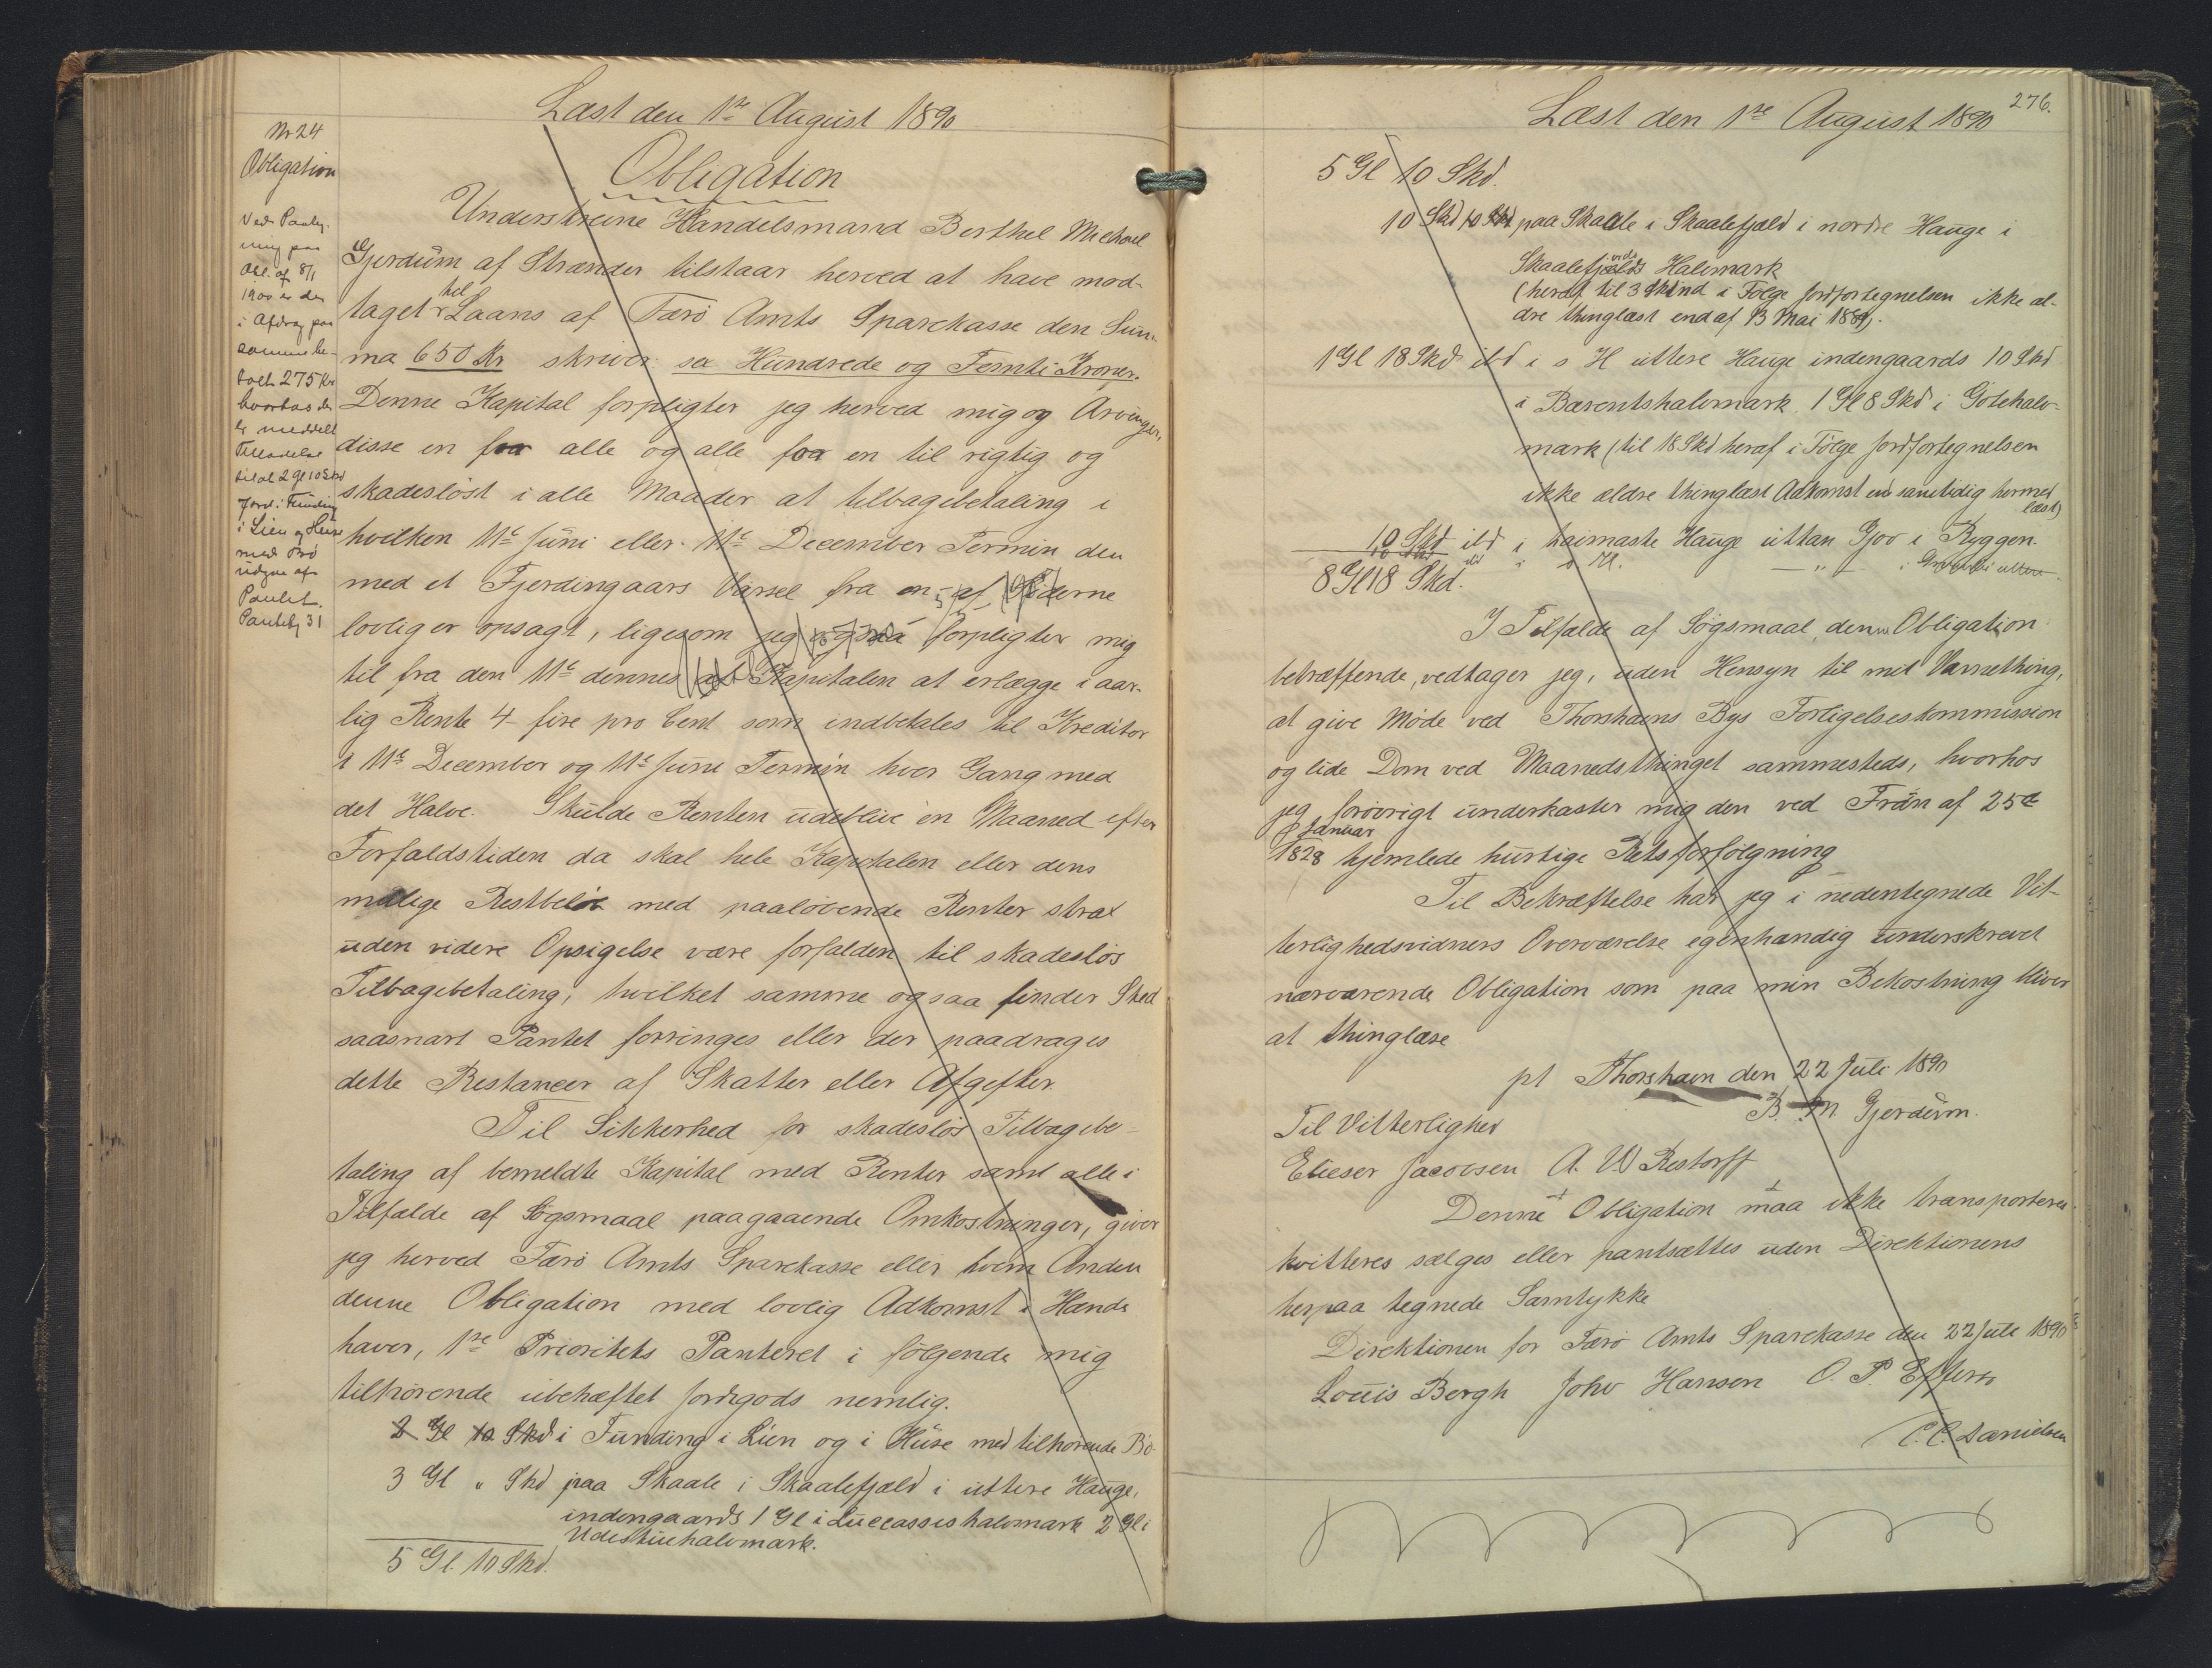 Læst den 1ste August 1890
Nr 24
Obligation
Ved Paateg-
ning paa
Obl. af 8/1
1900 er der
i Afdrag paa
samme be-
talt 275 Kr
hvorhos der
er meddelt
Tilladelse
til at 2 Gl 10 Skd
Jord i Funding
i Lien og Huse
med Brø
udgaar af
Pantet.
Pantebg 31
Obligation
Underskrevne Handelsmand Berthel Michael
Gjerdum af Strænder tilstaar herved at have mod-
taget til Laans af Færø Amts Sparekasse den Sum-
ma 650 Kr skriver sex Hundrede og Femti Kroner.
Denne Kapital forpligter jeg herved mig og Arvinger,
disse en for alle og alle for en til rigtig og
skadesløst i alle Maader at tilbagebetaling i
hvilken 11te Juni eller 11te December Termin den
med et Fjerdingaars Varsel fra en af Siderne
lovlig er opsagt, ligesom jeg ogsaa forpligter mig
til fra den 11te dennes at Kapitalen at erlægge i aar-
lig Rente 4 fire pro Cent som indbetales til Kreditor
i 11te December og 11te Juni Termin hver Gang med
det Halve. Skulde Renten udeblive én Maaned efter
Forfaldstiden da skal hele Kapitalen eller dens
mulige Restbeløb med paaløbende Renter strax
uden videre Opsigelse være forfalden til skadesløs
Tilbagebetaling, hvilket samme ogsaa finder Sted
saasnart Pantet forringes eller der paadrages
dette Restancer af Skatter eller Afgifter.
Til Sikkerhed for skadesløs Tilbagebe-
taling af bemeldte Kapital med Renter samt alle i
Tilfælde af Søgsmaal paagaaende Omkostninger, giver
jeg herved Færø Amts Sparekasse eller hvem Anden
denne Obligation med lovlig Adkomst i Hænde
haver, 1ste Prioritets Panteret i følgende mig
tilhørende ubehæftet Jordgods nemlig.
2 Gl 10 Skd i Funding i Lien og i Huse med tilhørende Bø
3 Gl " Skd paa Skaale i Skaalefjæld i uttere Hauge,
indengaards 1 Gl i Luccassishalvmark 2 Gl i
Udestuehalvmark.
5 Gl. 10 Skd.
276.
Læst den 1ste August 1890
5 Gl 10 Skd.
10 Skd paa Skaale i Skaalefjæld i nordre Hauge i
Skaalefjælds Halvmark
(heraf til 3 Skind i Følge Jordfortegnelsen ikke æl-
dre thinglæst end af 13 Mai 1889).
1 Gl 18 Skd ibd i s H uttere Hauge indengaards 10 Skd
i Bærentshalvmark, 1 Gl 8 Skd i Gotehalv-
mark (til 18 Skd heraf i Følge Jordfortegnelsen
ikke ældre thinglæst Adkomst end samtidig hermed
læst)
10 Skd ibd i haimaste Hauge uttan Gjov i Ryggen.
8 Gl 18 Skd.
I Tilfælde af Søgsmaal, denne Obligation
betræffende, vedtager jeg, uden Hensyn til mit Værnething,
at give Møde ved Thorshavns Bys Forligelseskommission
og lide Dom ved Maanedsthinget sammesteds, hvorhos
jeg forøvrigt underkaster mig den ved Frdn af 25de
Januar
1828 hjemlede hurtige Retsforfølgning
Til Bekræftelse har jeg i nedentegnede Vit-
terlighedsvidners Overværelse egenhændig underskrevet
nærværende Obligation som paa min Bekostning bliver
at thinglæse
pt Thorshavn den 22 Juli 1890
B. M. Gjerdum.
Til Vitterlighed
Elieser Jacobsen A. W Restorff
Denne Obligation maa ikke transporteres
kvitteres sælges eller pantsættes uden Direktionens
herpaa tegnede Samtykke
Direktionen for Færø Amts Sparekasse den 22 Juli 1890
Louis Bergh Johv Hansen O. P. Effersø
C. C. Danielsen